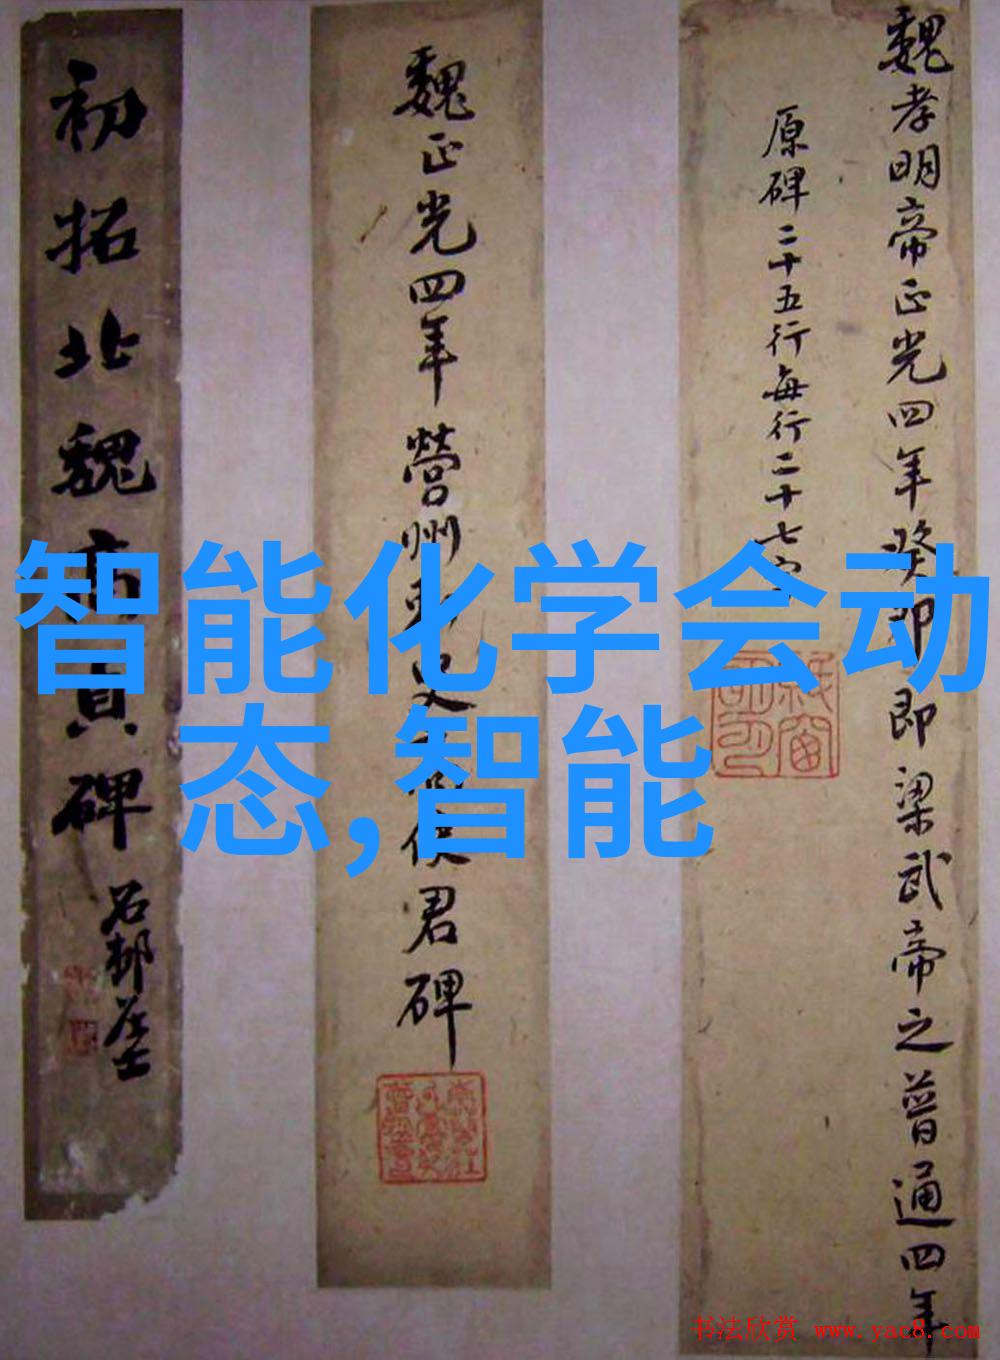 魏孝明帝正光四年癸卯即梁武帝之普通四年
原碑二十五行每行二十七字
魏正光四年營州刺史
侯君碑
初拓北魏高貞碑
石邨
智能化学会动
态,智能
书法欣赏 www.yac8.com